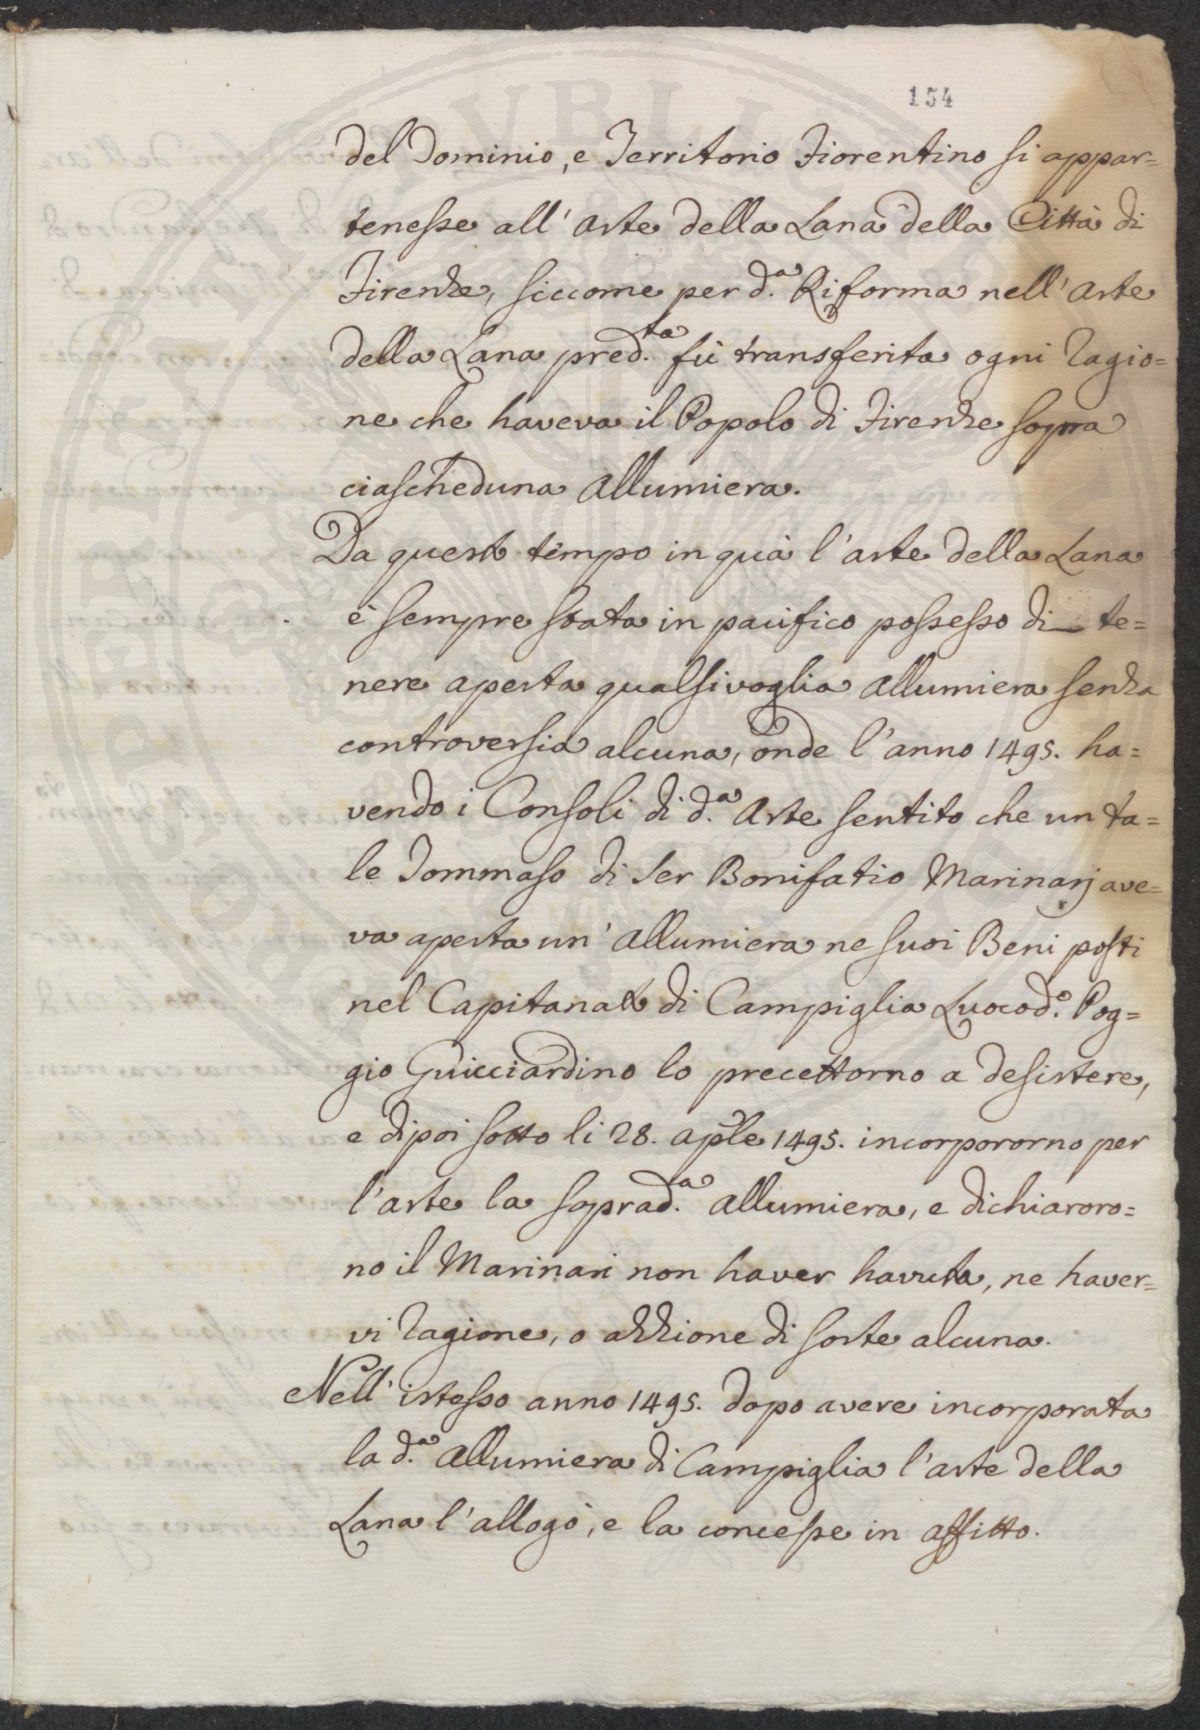 154
del Dominio, e Territorio Fiorentino si appar=
tenesse all' Arte della Lana della Città di
Firenze, siccome per d.ª Riforma nell' Arte
della Lana pred.ta fù transferita ogni ragio=
ne che haveva il Popolo di Firenze sopra
ciascheduna Allumiera.
Da questo tempo in quà l'arte della Lana
è sempre stata in pacifico possesso di te=
nere aperta qualsivoglia Allumiera senza
controversia alcuna, onde l'anno 1495. ha=
vendo i Consoli di d.ª Arte sentito che un ta=
le Tommaso di Ser Bonifatio Marinarj ave=
va aperta un' Allumiera ne suoi Beni posti
nel Capitanato di Campiglia Luoco d.º Pog=
gio Guicciardino lo precettorno a desistere,
e dipoi sotto li 28. aple 1495. incorpororno per
l'arte la soprad.ª Allumiera, e dichiaroro=
no il Marinari non haver havuta, ne haver=
vi ragione, o azzione di sorte alcuna.
Nell' istesso anno 1495. dopo avere incorporata
la d.ª Allumiera di Campiglia l'arte della
Lana l'allogò, e la concesse in affitto.